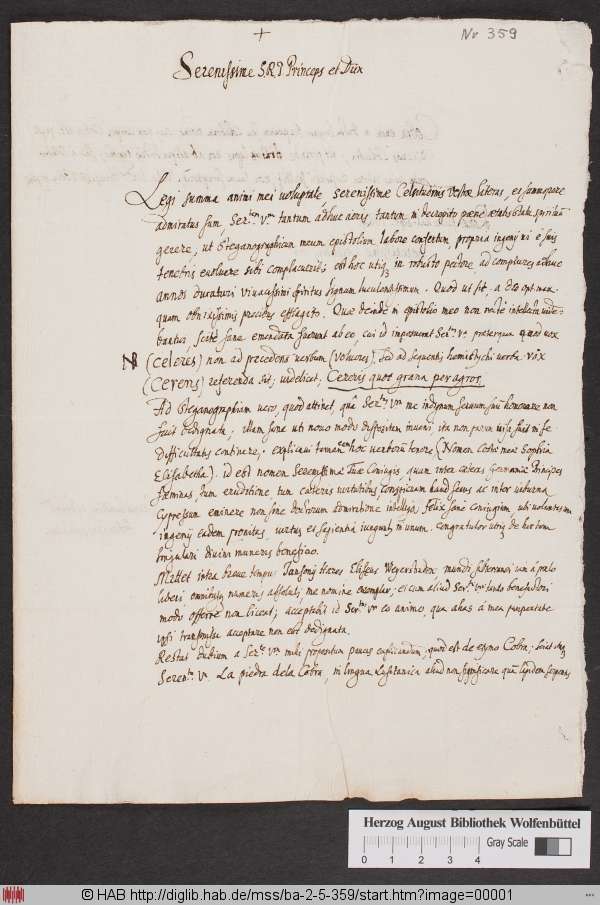 +
Nr 359
Serenissime S.R.I. Princeps et Dux
Legi summa animi mei voluptate, serenissimæ Celsitudinis Vestræ literas, et
admiratus sum Ser.tem V.am tantum adhuc æris, tantum in decrepito pæne ætatis statu spiritum
gerere, ut Steganographicum meum epistolium labore confectum propria ingenij vi è suis
tenebris evoluere sibi complacuerit: est hoc utiq; in robusto pectore, ad complures adhuc
annos duraturi vivacissimi spiritus signum luculentissimum. Quod ut sit, a Deo opt. max.
quam obnixissimis precibus efflagito. Quæ deinde in epistolio meo non recte intellecta vide-
bantur, scite sane emendata fuerunt ab eo, cui id imposuerat Ser.tas V.a præterquam quod vox
N (celeres) non ad præcedens verbum (volucres), sed ad sequentis hemistychi verba vox
(Cereris) referenda sit; videlicet, Cereris quot grana per agros.
Ad Steganographiam vero, quod attinet, quâ Ser.tas V.ra me indignum servum suum honorare non
fuit dedignata, illam sane uti novo modo dispositam inveni, ita non parum visa fuit mihi
difficultatis continere; explicavi tamen hoc verborum tenore (Nomen Coniugis meæ Sophia
Elisabetha). id est nomen Serenissimæ Tuæ Coniugis, quam inter cæteras Germaniæ Principes
fœminas, tum eruditione tum cæteris virtutibus conspicuam haud secus ac inter viburna
Cypressum eminere non sine doctorum admiratione intellexi. Felix sane coniugium, ubi voluntatum
ingenij eadem pronitas, virtus et sapientia iuegunt in unum. congratulor utiq; de hac tam
singulari divini muneris beneficio.
Mittet intra breve tempus Jansonij Hæres Elizeus Weyerstraten mundi subterranei iam à prælo
liberi omnibusq; numeris absoluti, me nomine exemplar; et cum aliud Ser.ti V.ræ tanto benefactori
modo offerre non liceat; acceptabit id Ser.tas V.ra eo animo, quo alias à mea paupertate
ipsi transmissa acceptare non est dedignata.
Restat dubium a Ser.te V.ra mihi propositum paucis explicandum, quod est de etymo Cobra. sciat itaq;
Seren.tas V.a La piedra dela Cobra, in lingua Lusitanica aliud non significare quam lapidem serpentis
Herzog August Bibliothek Wolfenbüttel
Gray Scale
0 1 2 3 4
© HAB http://diglib.hab.de/mss/ba-2-5-359/start.htm?image=00001